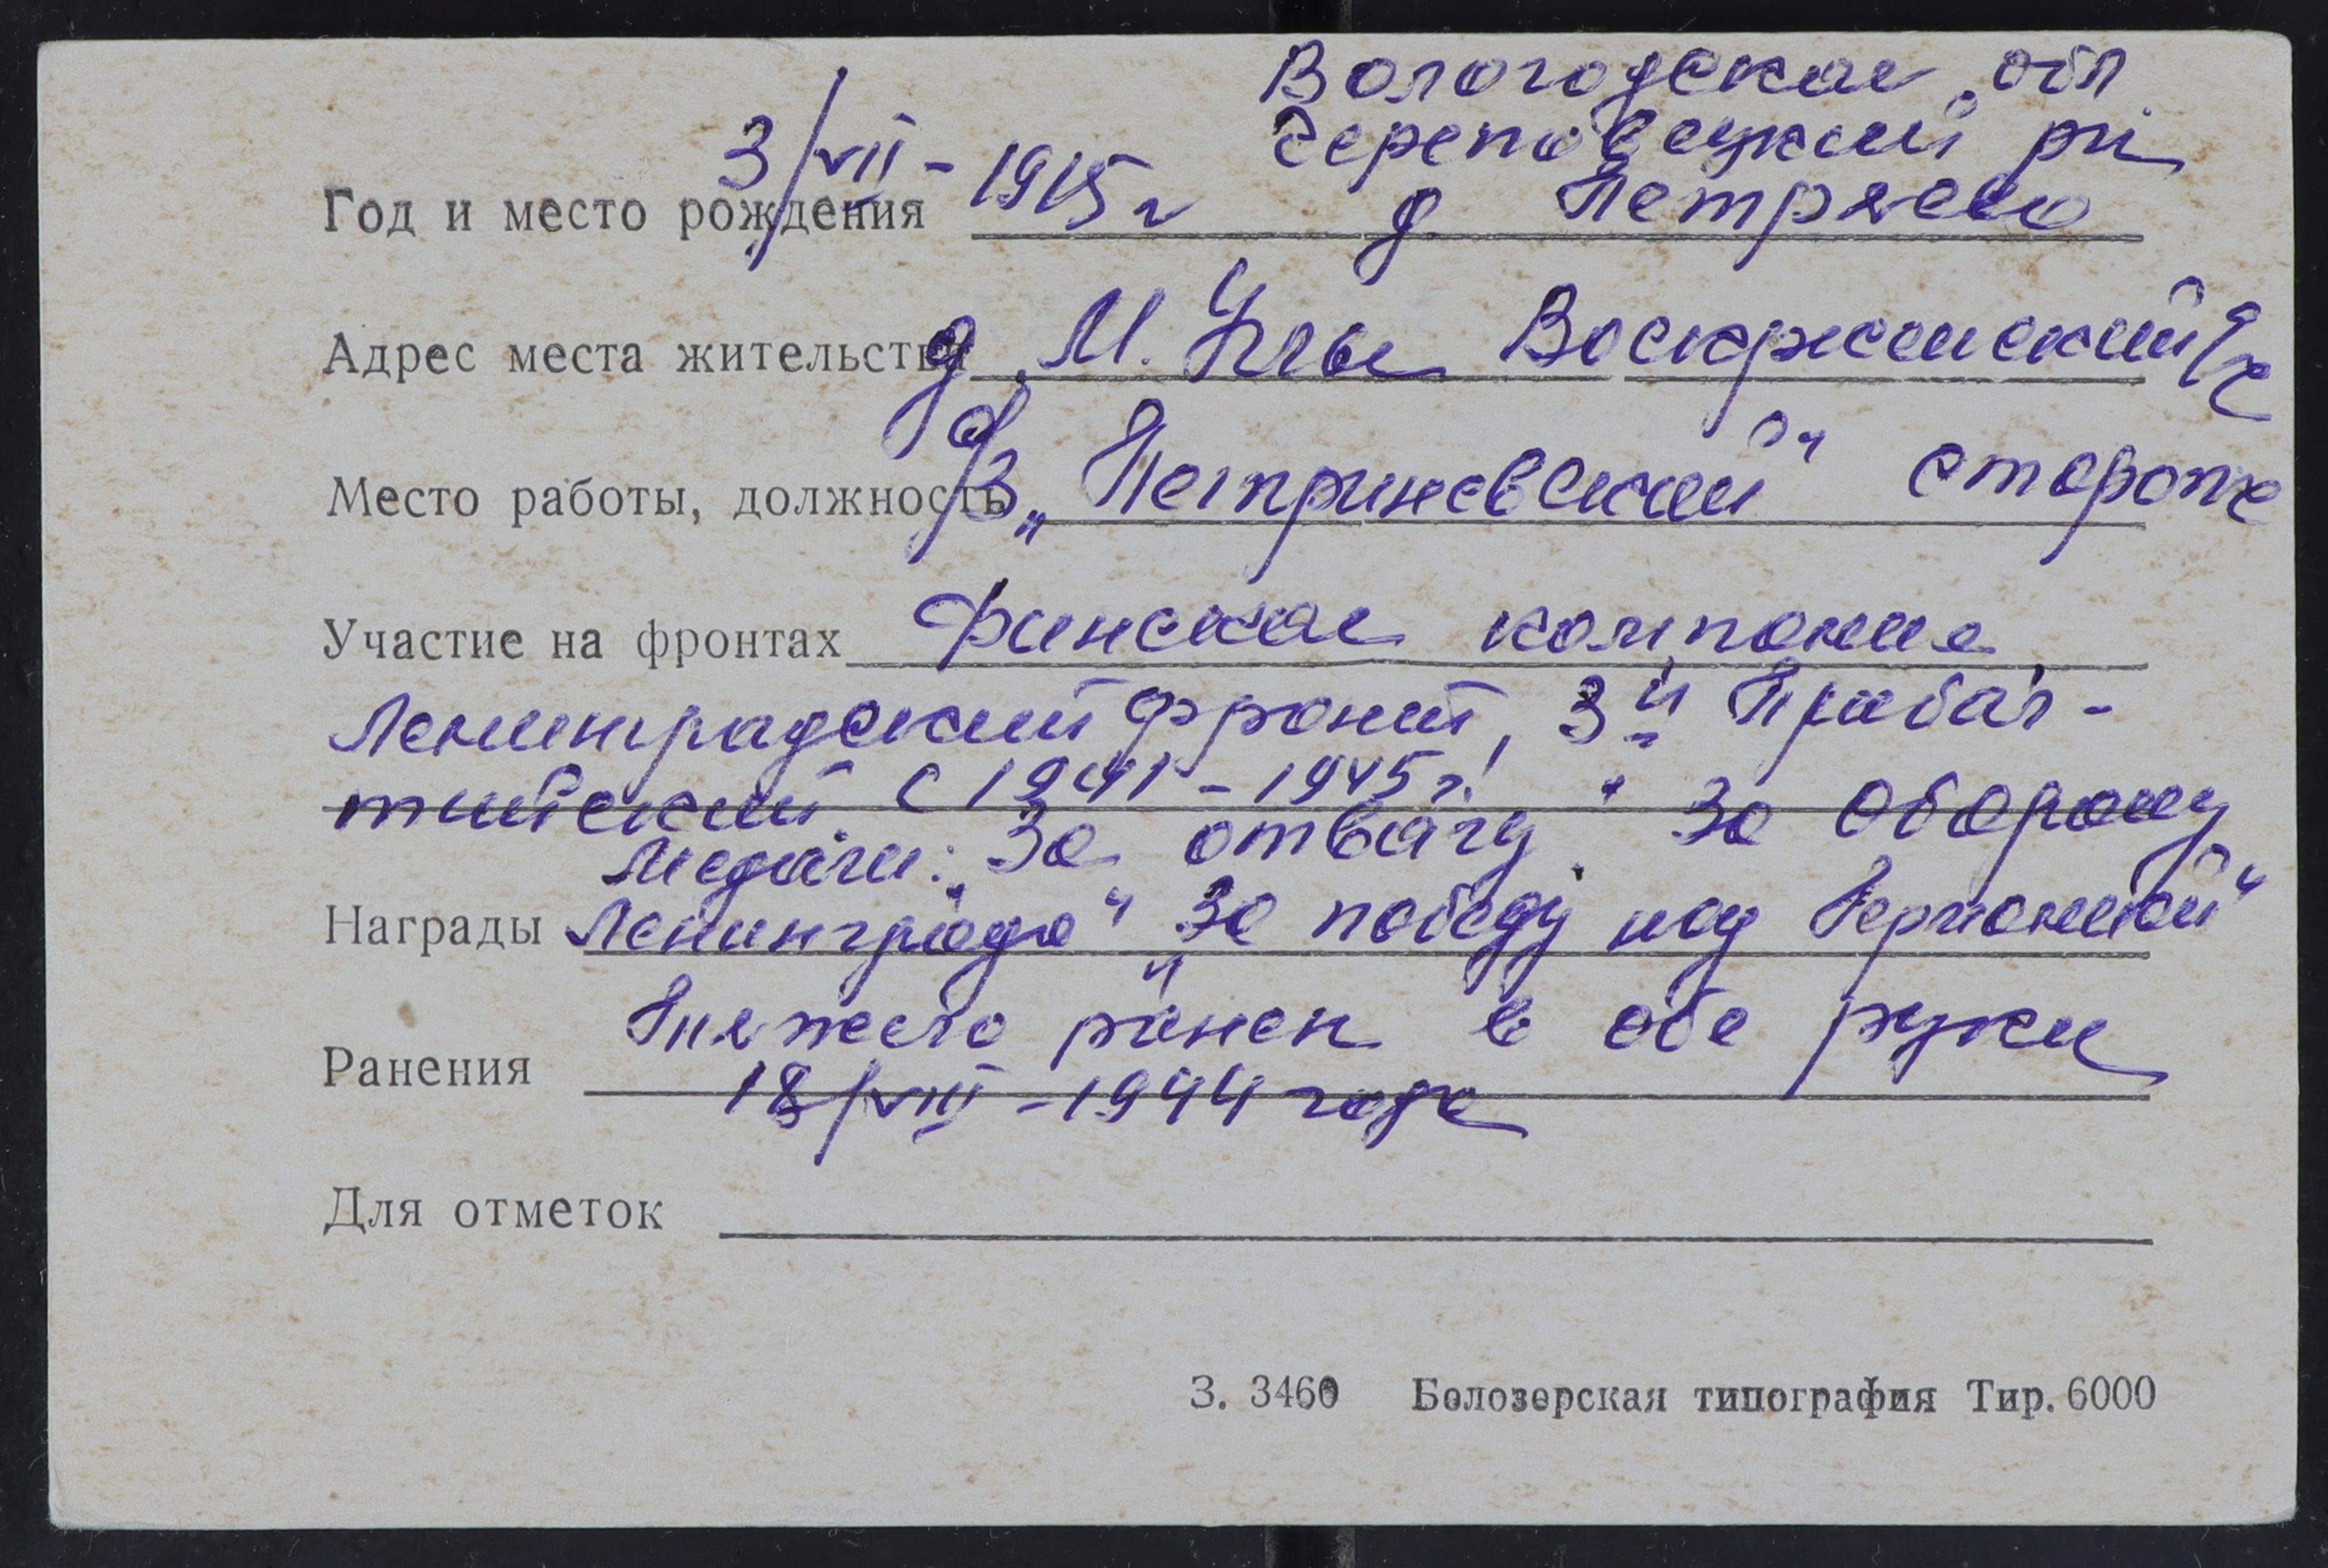 Вологодская обл.
Череповецкий рн
Год и место рождения 3/VII - 1915 г д Петряево
Адрес места жительства д. М. Углы Воскресенский с/с
Место работы, должность с/з „Петриневский" сторож
Участие на фронтах Финская компания,
Ленинградский фронт, 3й Прибал-
тийский с 1941 - 1945 г.
Медали: „За отвагу" „За оборону
Награды Ленинграда" „За победу над Германией"
Ранения Тяжело ранен в обе руки
18/VIII - 1944 года
Для отметок
З. 3460 Белозерская типография Тир. 6000